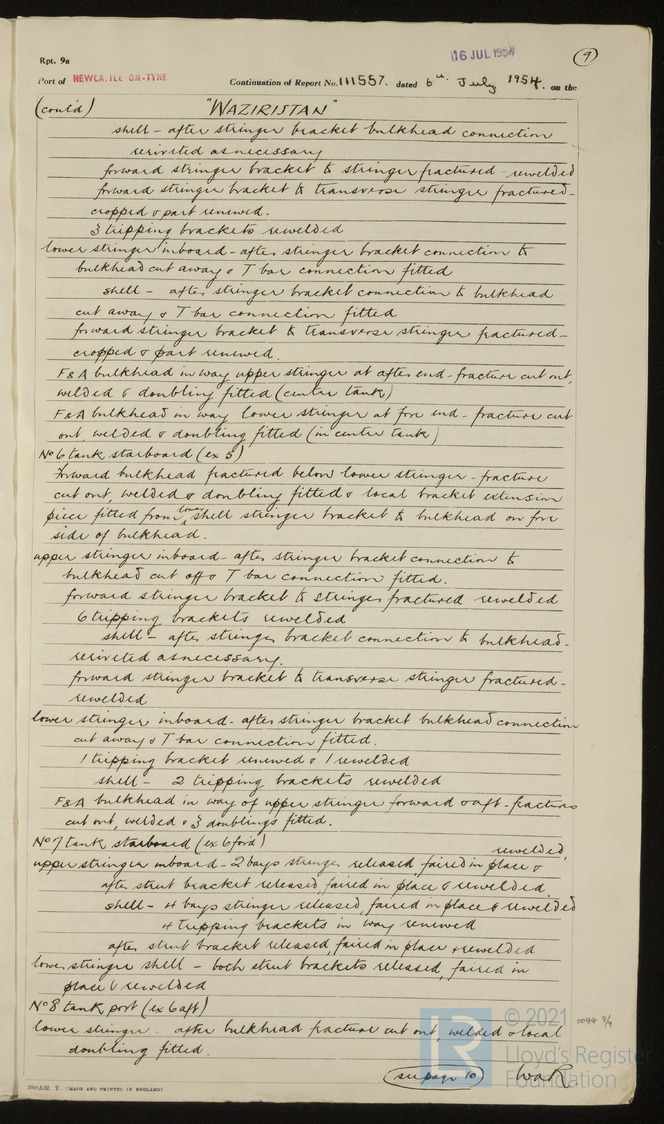 Rpt. 9a
16 JUL 1954
9
Port of NEWCASTLE-ON-TYNE
Continuation of Report No. 111557. dated 6th July 1954. on the
(cont'd) "WAZIRISTAN"
shell - after stringer bracket bulkhead connection
reriveted as necessary
forward stringer bracket to stringer fractured - rewelded
forward stringer bracket to transverse stringer fractured -
cropped & part renewed.
3 tripping brackets rewelded
lower stringer inboard - after stringer bracket connection to
bulkhead cut away & T bar connection fitted
shell - after stringer bracket connection to bulkhead
cut away & T bar connection fitted
forward stringer bracket to transverse stringer fractured -
cropped & part renewed.
F&A bulkhead in way upper stringer at after end - fracture cut out,
welded & doubling fitted (center tank)
F&A bulkhead in way lower stringer at fore end - fracture cut
out, welded & doubling fitted (in center tank)
No 6 tank starboard (ex 5)
Forward bulkhead fractured below lower stringer - fracture
cut out, welded & doubling fitted & local bracket extension
piece fitted from lower shell stringer bracket to bulkhead on fore
side of bulkhead.
upper stringer inboard - after stringer bracket connection to
bulkhead cut off & T bar connection fitted.
forward stringer bracket to stringer fractured rewelded
6 tripping brackets rewelded
shell - after stringer bracket connection to bulkhead -
reriveted as necessary.
forward stringer bracket to transverse stringer fractured -
rewelded
lower stringer inboard - after stringer bracket bulkhead connection
cut away & T bar connection fitted.
1 tripping bracket renewed & 1 rewelded
shell - 2 tripping brackets rewelded
F&A bulkhead in way of upper stringer forward & aft - fractures
cut out, welded & 3 doublings fitted.
No 7 tank starboard (ex 6 ford)
rewelded,
upper stringer inboard - 2 bays stringer released, faired in place &
after strut bracket released, faired in place & rewelded.
shell - 4 bays stringer released, faired in place & rewelded
4 tripping brackets in way renewed
after strut bracket released, faired in place & rewelded
lower stringer shell - both strut brackets released, faired in
place & rewelded
No 8 tank port (ex 6 aft)
lower stringer - after bulkhead fracture cut out, welded & local
doubling fitted.
(see page 10)
WaR.
© 2021
Lloyd's Register
Foundation
LR
T. (MADE AND PRINTED IN ENGLAND)